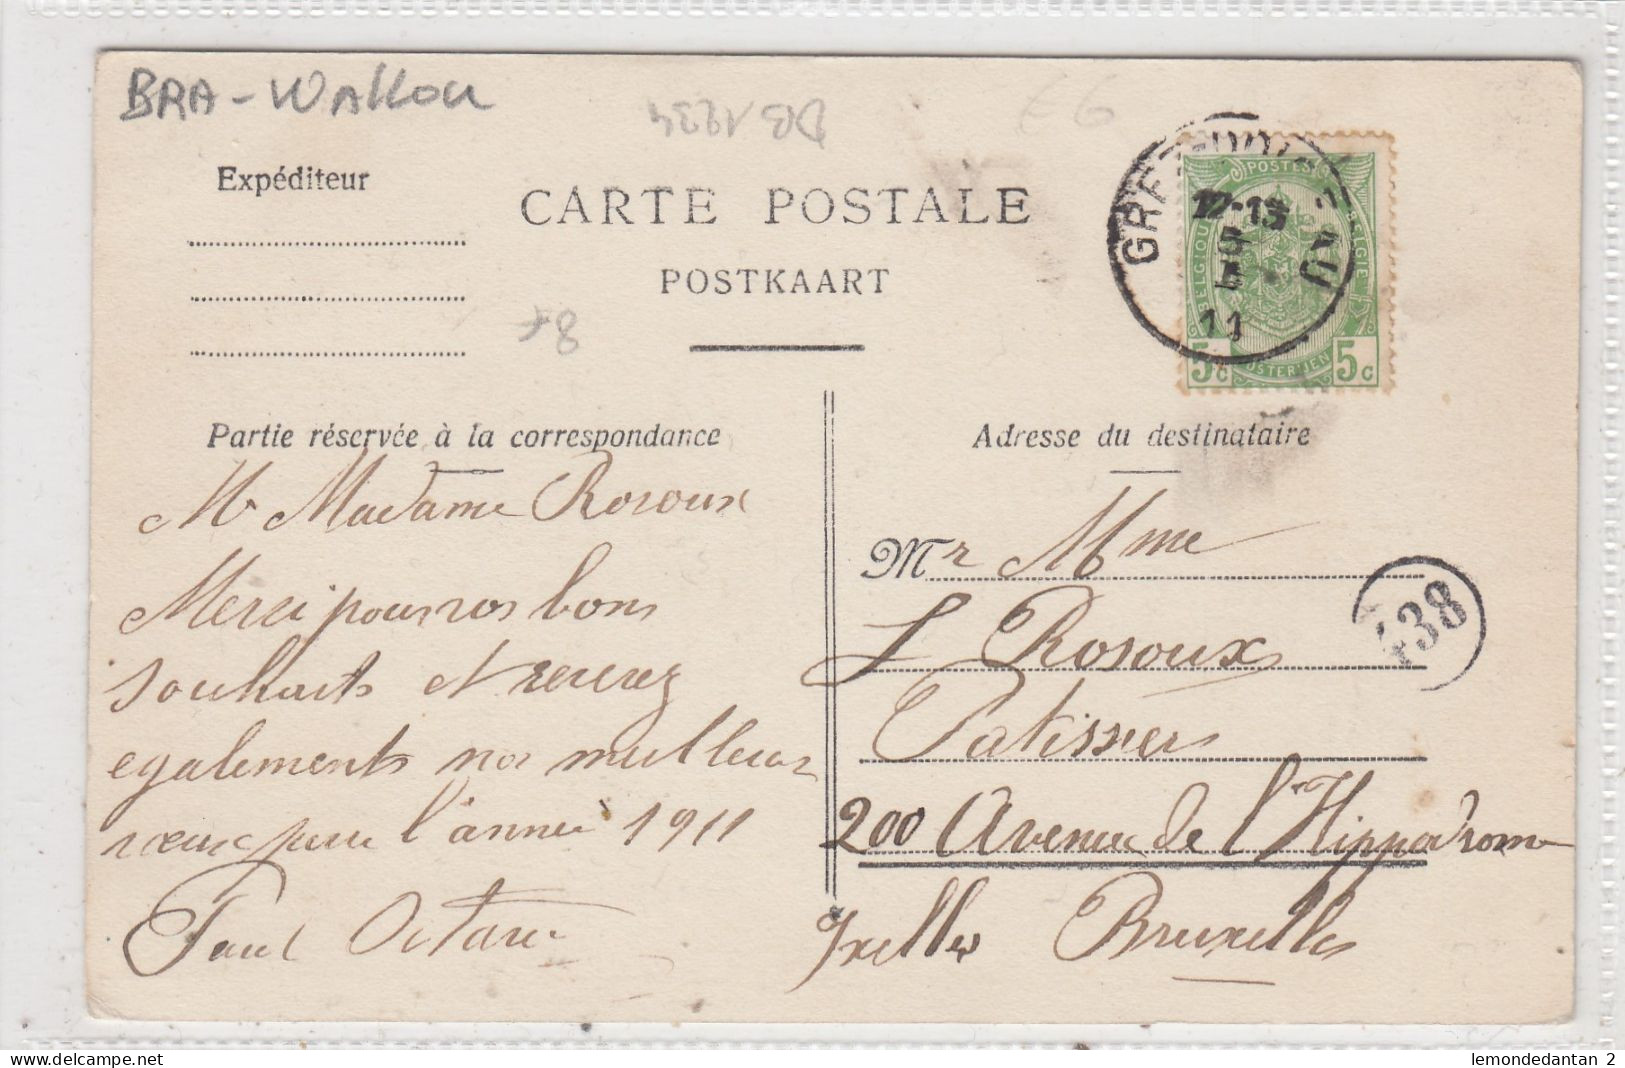 BRA-Wallon
DB1234
Expéditeur
CARTE POSTALE
POSTKAART
8f
12-13
5
1
11
POSTES
BELGIQUE
BELGIË
POSTERIJEN
5c 5c
Partie réservée à la correspondance
Adresse du destinataire
Mr Madame Rosoux
Merci pour vos bons
souhaits et recevez
egalements nos meilleurs
vœux pour l'année 1911
Paul Octave
Mr Mme
L Rosoux
Patissier
200 Avenue de l'Hippodrome
Ixelles Bruxelles
438
lemondedantan 2